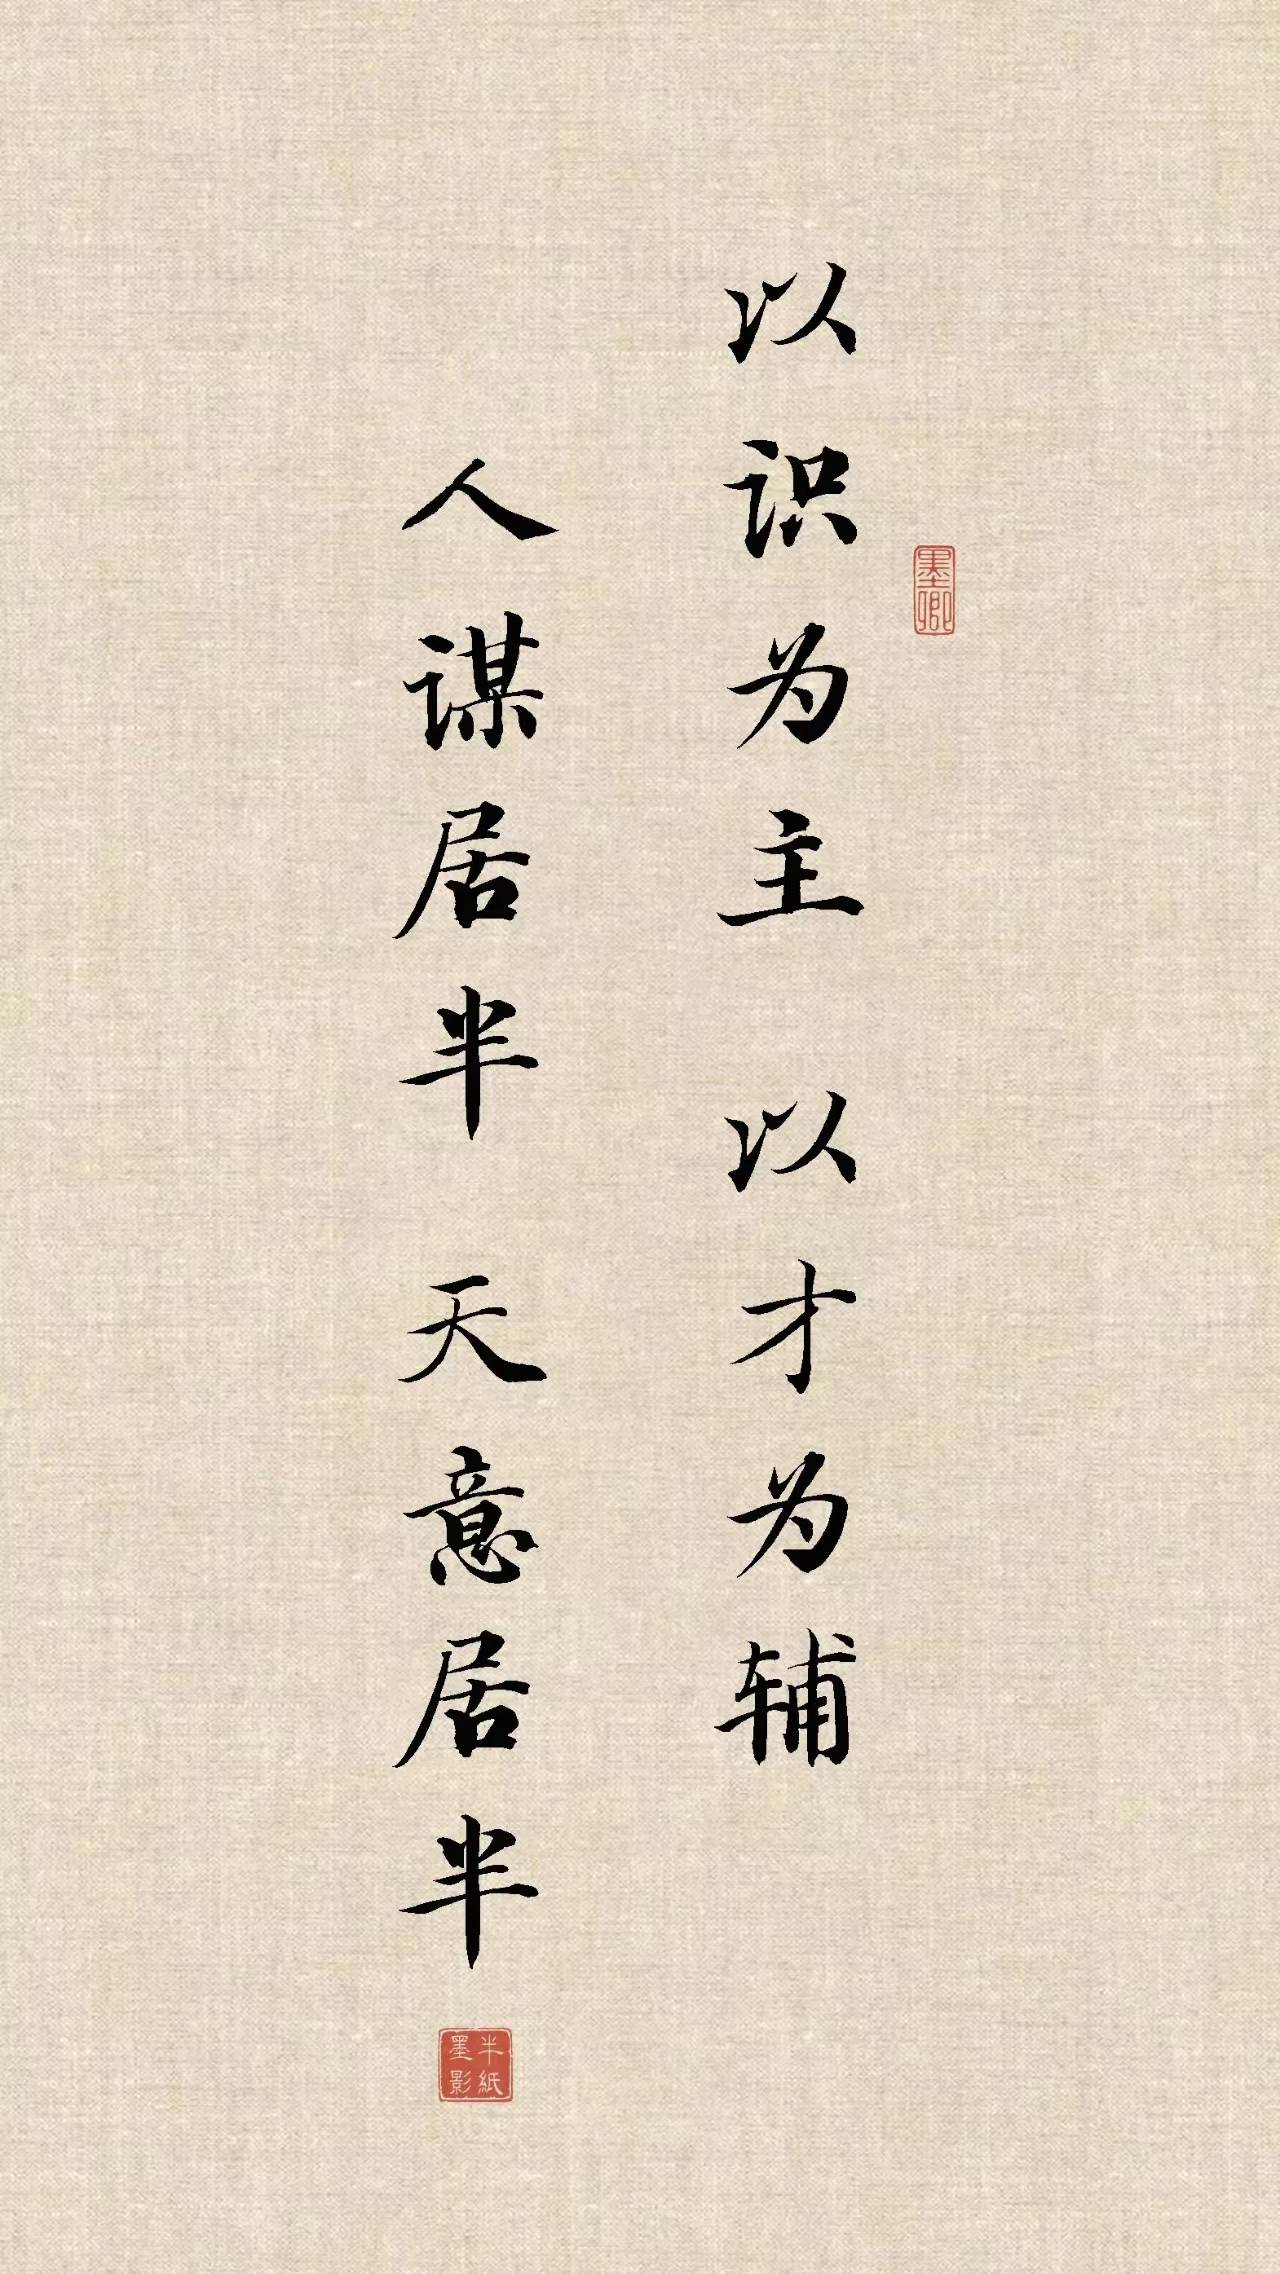 以识为主 以才为辅
墨卿
人谋居半 天意居半
半纸墨影